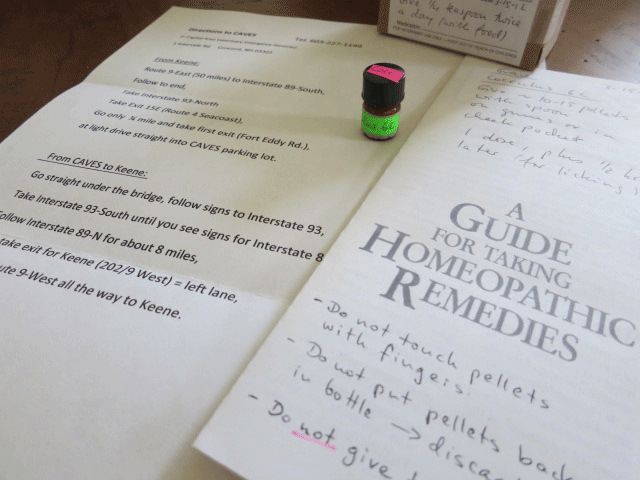 Directions to CAVES
Tel. 603-227-1199
Capital Area Veterinary Emergency Services
1 Interstate Rd. Concord, NH 03301
From Keene:
Route 9-East (50 miles) to Interstate 89-South,
Follow to end,
Take Interstate 93-North
Take Exit 15E (Route 4 Seacoast),
Go only ¼ mile and take first exit (Fort Eddy Rd.),
at light drive straight into CAVES parking lot.
From CAVES to Keene:
Go straight under the bridge, follow signs to Interstate 93,
Take Interstate 93-South until you see signs for Interstate 8
Follow Interstate 89-N for about 8 miles,
take exit for Keene (202/9 West) = left lane,
ute 9-West all the way to Keene.
Give ¼ teaspoon twice
a day (with food)
6c
Give 10-15 pellets
with spoon
on gums or in
cheek pocket
1 dose, plus ½
later for licking
A
GUIDE
FOR TAKING
HOMEOPATHIC
REMEDIES
- Do not touch pellets
with fingers.
- Do not put pellets back
in bottle → discar
- Do not give